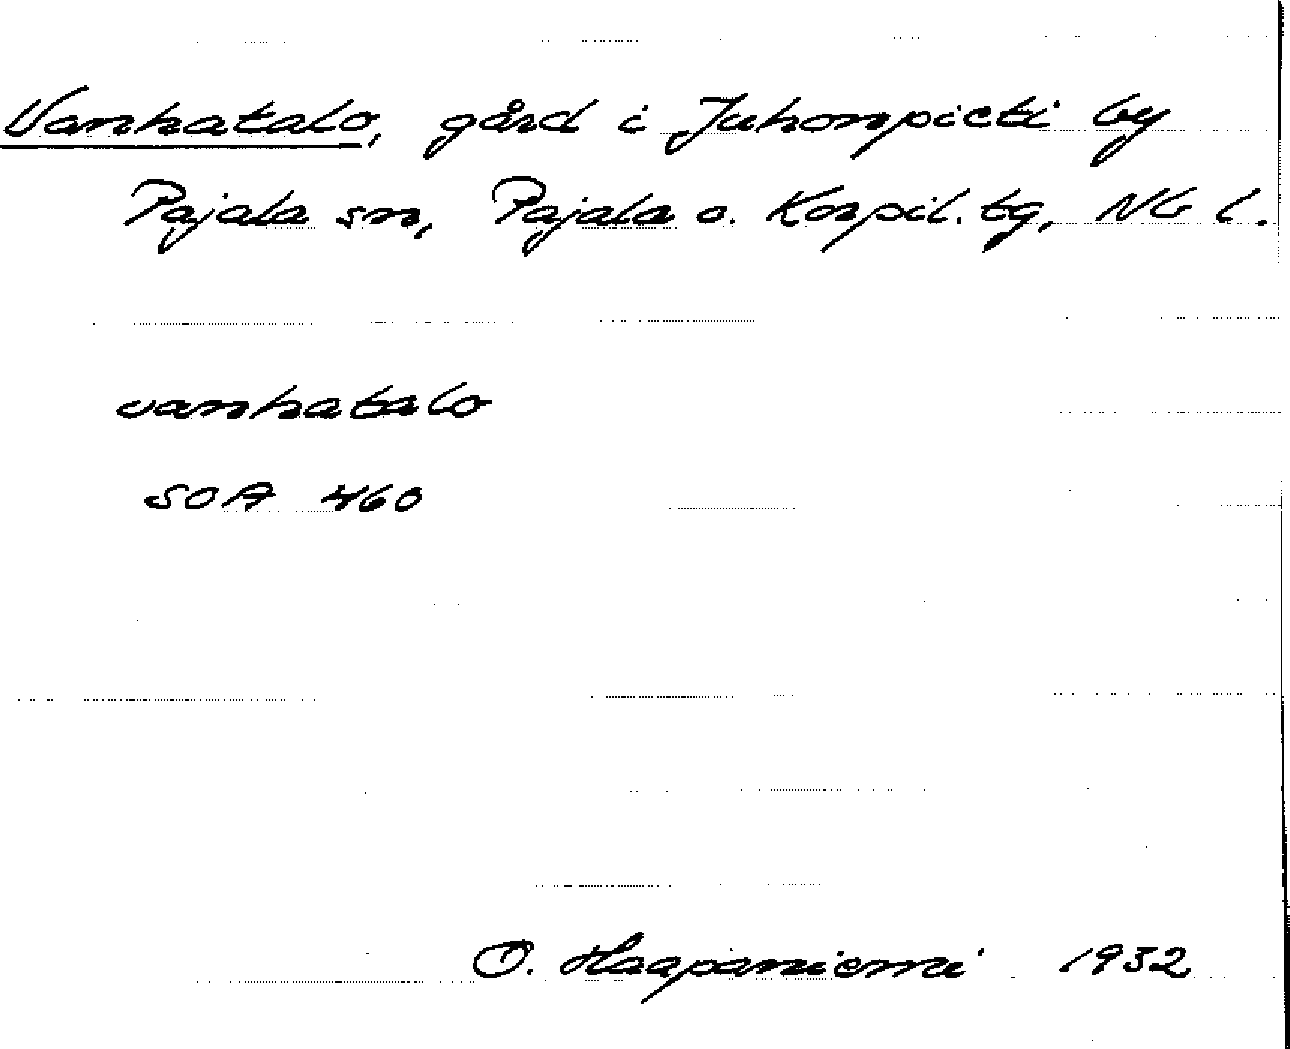 Vanhatalo, gård i Juhonpieti by
Pajala sn, Pajala o. Korpil. tg, Nb l.
vanhatalo
SOA 460
O. Haapaniemi 1932